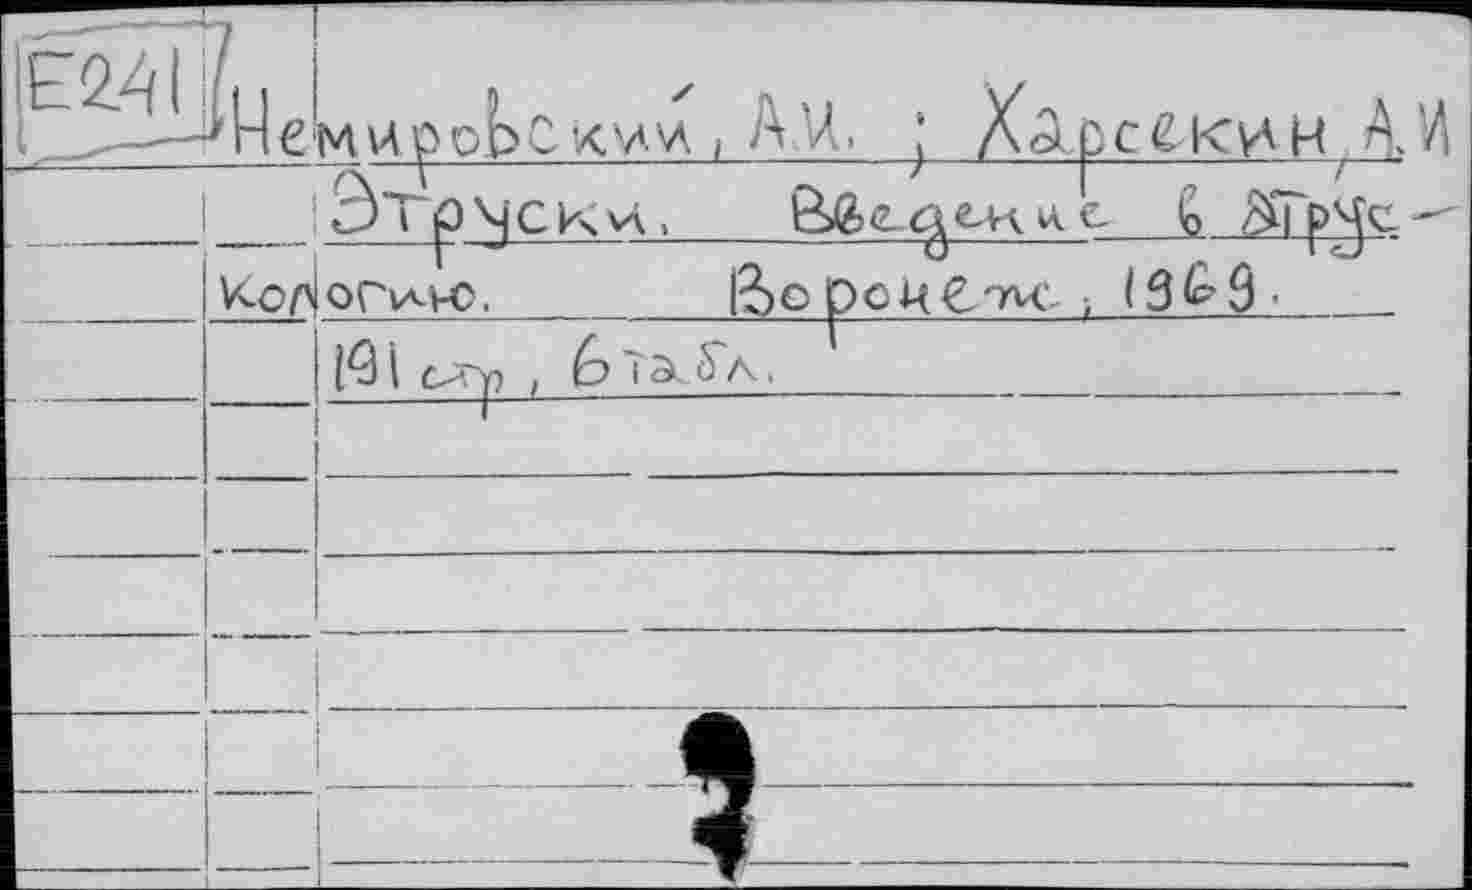 E241
Немировский, А.И. ; Харсекин, А.И
Этруски. Введение в этрус-
кологию. Воронеж, 1969.
191 стр, 6 табл.